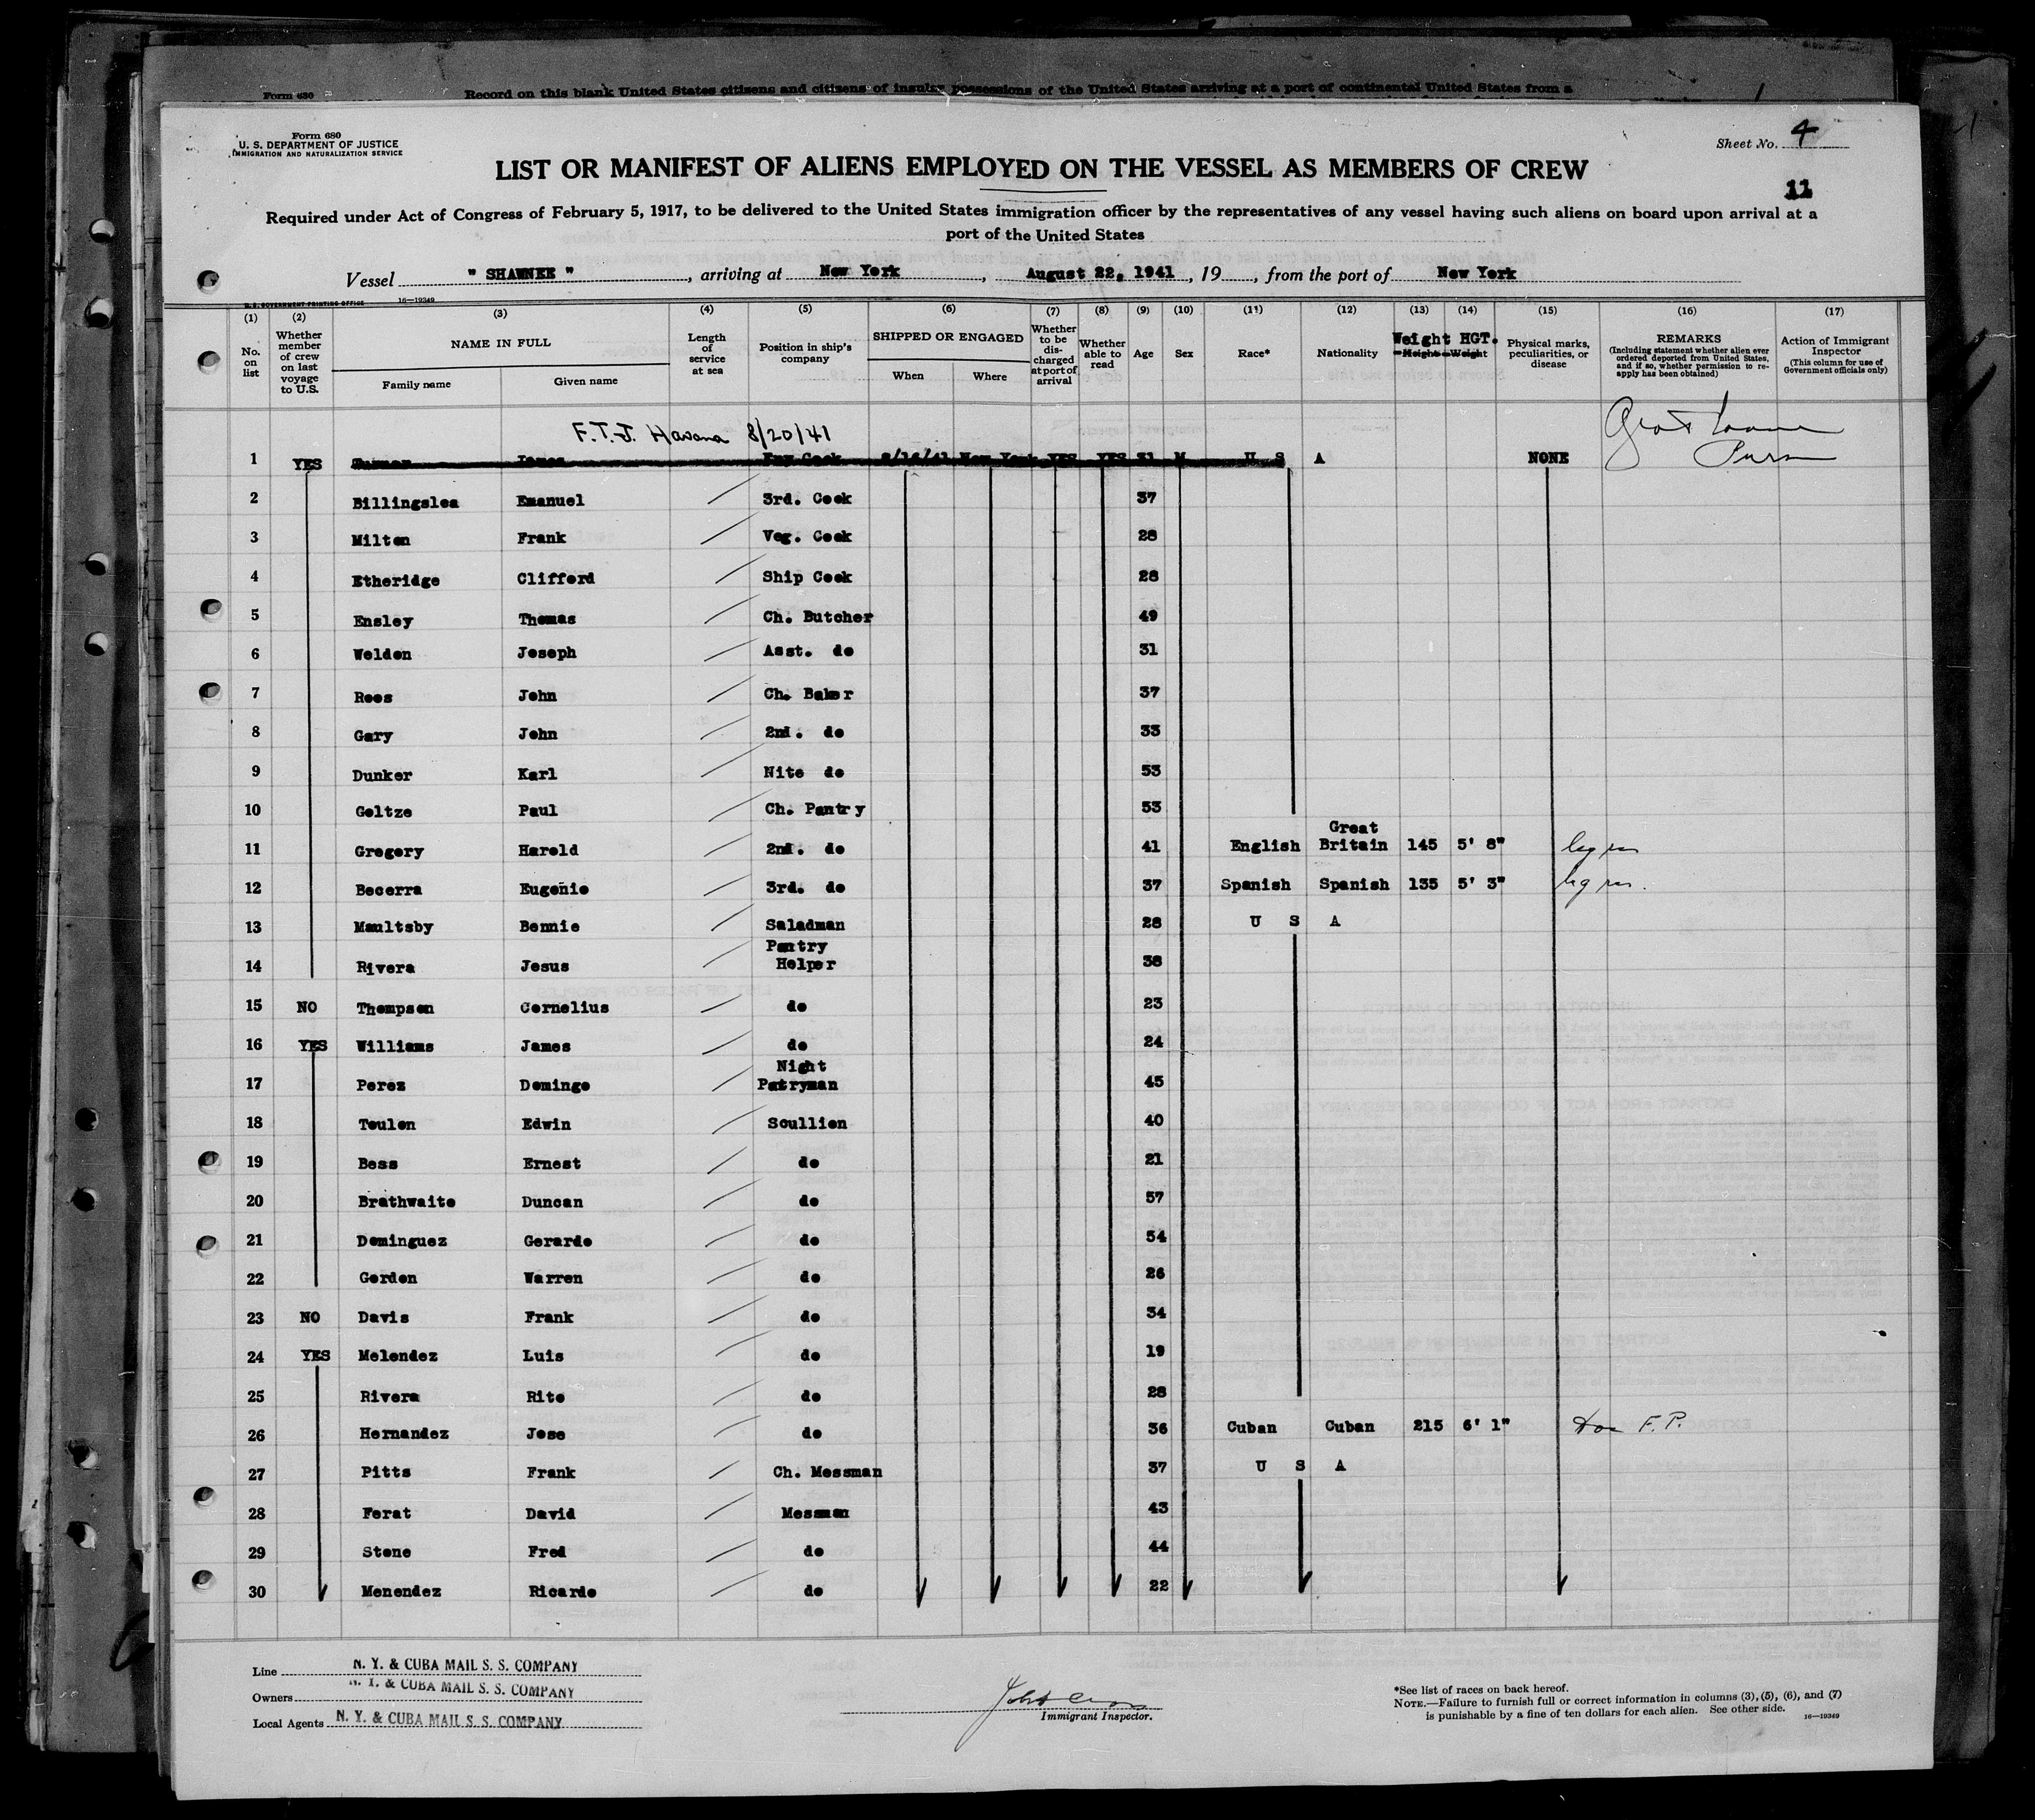 Form 630
Record on this blank United States citizens and citizens of insular possessions of the United States arriving at a port of continental United States from a
Form 680
U. S. DEPARTMENT OF JUSTICE
IMMIGRATION AND NATURALIZATION SERVICE
Sheet No. 4
LIST OR MANIFEST OF ALIENS EMPLOYED ON THE VESSEL AS MEMBERS OF CREW
11
Required under Act of Congress of February 5, 1917, to be delivered to the United States immigration officer by the representatives of any vessel having such aliens on board upon arrival at a
port of the United States
Vessel " SHAWNEE ", arriving at New York, August 22, 1941, 19, from the port of New York
U. S. GOVERNMENT PRINTING OFFICE 16—19349
(1) (2) (3) (4) (5) (6) (7) (8) (9) (10) (11) (12) (13) (14) (15) (16) (17)
No. on list
Whether member of crew on last voyage to U.S.
NAME IN FULL
Family name Given name
Length of service at sea
Position in ship's company
SHIPPED OR ENGAGED
When Where
Whether to be discharged at port of arrival
Whether able to read
Age
Sex
Race*
Nationality
Weight HGT.
Height Weight
Physical marks, peculiarities, or disease
REMARKS
(Including statement whether alien ever ordered deported from United States, and if so, whether permission to reapply has been obtained)
Action of Immigrant Inspector
(This column for use of Government officials only)
F.T.J. Havana 8/20/41
1 YES James Cook 8/16/41 New York YES YES 31 M U S A NONE
2 Billingslea Emanuel 3rd. Cook 37
3 Milton Frank Veg. Cook 28
4 Etheridge Clifford Ship Cook 28
5 Ensley Thomas Ch. Butcher 49
6 Weldon Joseph Asst. do 31
7 Roos John Ch. Baker 37
8 Gary John 2nd. do 33
9 Dunker Karl Nite do 53
10 Goltze Paul Ch. Pantry 53
11 Gregory Harold 2nd. do 41 English Great Britain 145 5' 8"
12 Becerra Eugenio 3rd. do 37 Spanish Spanish 135 5' 3"
13 Maultsby Bennie Saladman 28 U S A
14 Rivera Jesus Pantry Helper 38
15 NO Thompson Cornelius do 23
16 YES Williams James do 24
17 Perez Domingo Night Patryman 45
18 Toulon Edwin Scullion 40
19 Bess Ernest do 21
20 Brathwaite Duncan do 57
21 Dominguez Gerardo do 54
22 Gordon Warren do 26
23 NO Davis Frank do 34
24 YES Melendez Luis do 19
25 Rivera Rito do 28
26 Hernandez Jose do 36 Cuban Cuban 215 6' 1" F.P.
27 Pitts Frank Ch. Messman 37 U S A
28 Ferat David Messman 43
29 Stone Fred do 44
30 Menendez Ricardo do 22
Line N. Y. & CUBA MAIL S. S. COMPANY
Owners N. Y. & CUBA MAIL S. S. COMPANY
Local Agents N. Y. & CUBA MAIL S. S. COMPANY
Immigrant Inspector.
*See list of races on back hereof.
NOTE.—Failure to furnish full or correct information in columns (3), (5), (6), and (7)
is punishable by a fine of ten dollars for each alien. See other side. 16—19349